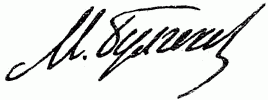 М. Булгаков